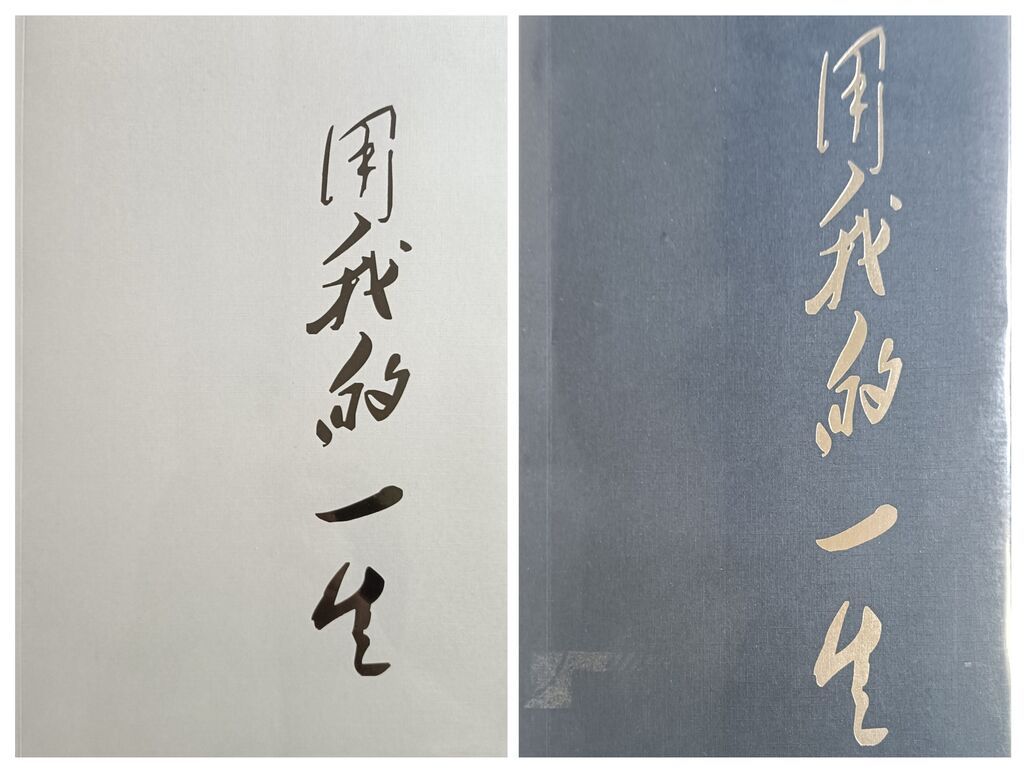 用我的一生
用我的一生